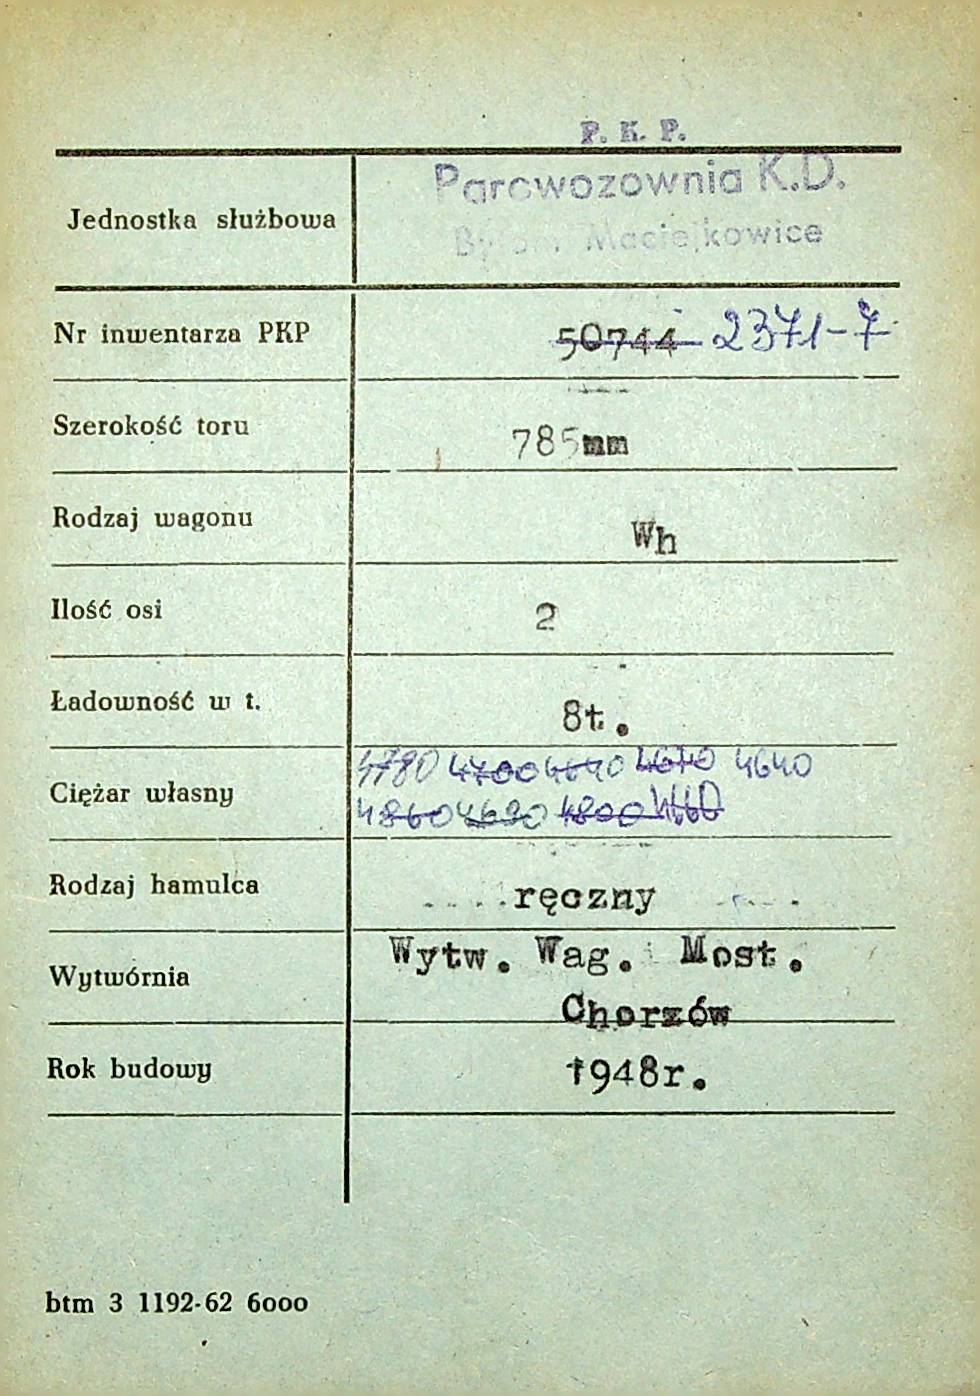 P. K. P.
Jednostka służbowa Parowozownia K.D.
Maciejkowice
Nr inwentarza PKP 50744 2371-7
Szerokość toru 785mm
Rodzaj wagonu Wh
Ilość osi 2
Ładowność w t. 8t.
4780 4700 4640
Ciężar własny
4860 4690 4800
Rodzaj hamulca ręczny
Wytw. Wag. Most.
Wytwórnia
Chorzów
Rok budowy 1948r.
btm 3 1192-62 6000